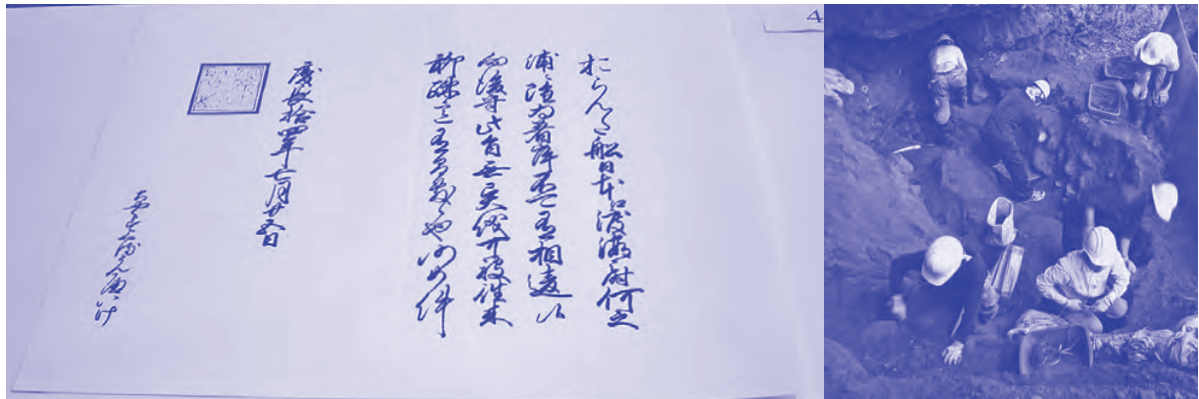 4
おらんた船日本江渡海之時何之
浦に雖為着岸不可有相違候
向後守此旨無異儀可被往来
聊疎意有間敷候也仍如件
慶長拾四年七月廿五日